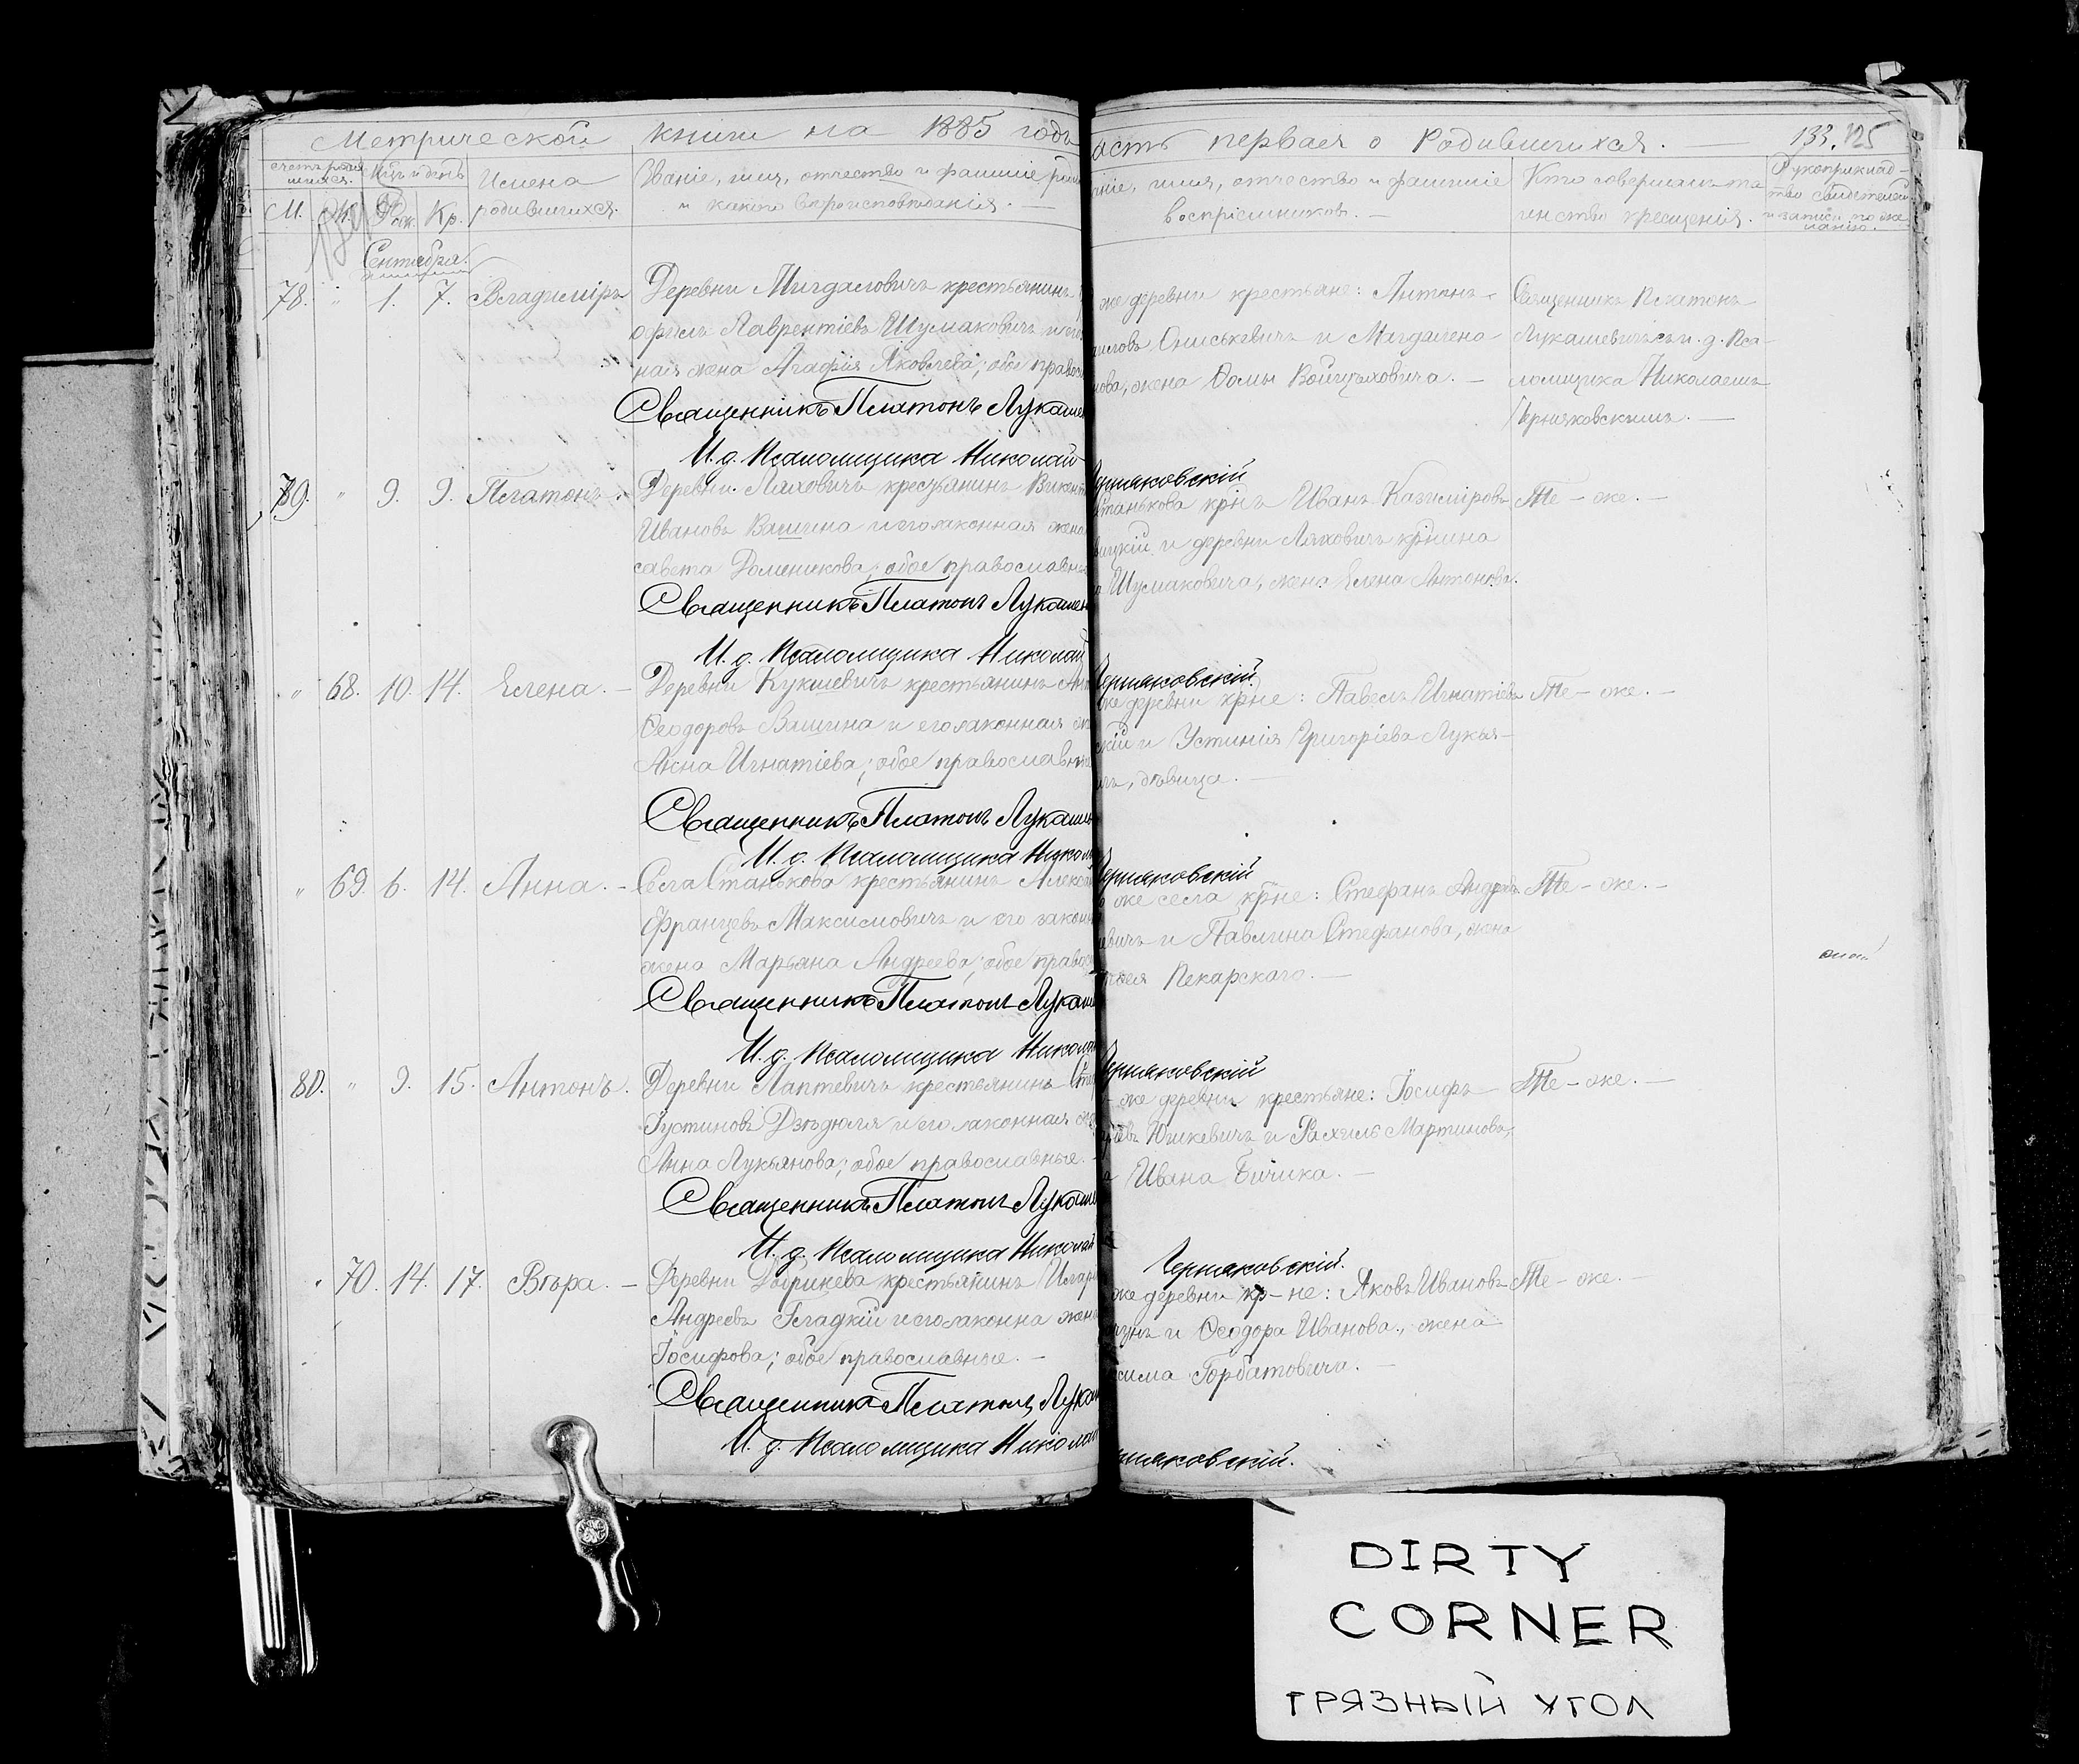 Метрической книги на 1885 годъ
асть первая о Родившихся. 133. 125
счетъ родив
шихся.
Мцъ и день
Имена
родившихся.
Званіе, имя, отчество и фамиліе роди
и какого вѣроисповѣданія.
М. Ж. Рож. Кр.
ніе, имя, отчество и фамиліе
воспріемниковъ.
Кто совершалъ та
инство крещенія.
Рукоприклад-
тво свидѣтелей
и записи по же
ланію.
Сентября.
78. " 1. 7. Владиміръ
Деревни Мигдаловичъ крестьянинъ
офилъ Лаврентіевъ Шумаковичъ и его
ная жена Агафія Яковлева; обое правосл
Священникъ Платонъ Лукаше
И. д. Псаломщика Николай
же деревни крестьяне: Антонъ
Ониськевичъ и Магдалена
нова, жена Ѳомы Войцѣховича. —
Священникъ Платонъ
Лукашевичъ съ и. д. Пса-
ломщика Николаемъ
Черняковскимъ. —
Черняковскій
79. " 9. 9. Платонъ.
Деревни Ляховичъ крестьянинъ Викент
Ивановъ Вашина и его законная жена
савета Доминикова; обое православны
Священникъ Платонъ Лукаше
И. д. Псаломщика Николай
Станькова крнъ Иванъ Казиміровъ
вицкій и деревни Ляховичъ крнина
Шумаковича, жена Елена Антонова.
Тѣ-же. —
Черняковскій
" 68. 10. 14. Елена. —
Деревни Кукшевичъ крестьянинъ Ант
Ѳеодоровъ Вашина и его законная ж
Анна Игнатіева; обое православны
Священникъ Платонъ Лукаше
И. д. Псаломщика Никол
же деревни крне: Павелъ Игнатіевъ
скій и Устинія Григоріева Лукья-
дѣвица. —
Тѣ-же. —
Черняковскій
" 69. 6. 14. Анна. —
Села Станькова крестьянинъ Алекса
Францевъ Максимовичъ и его закон
жена Марьяна Андреева; обое правос
Священникъ Платонъ Лукаш
И. д. Псаломщика Никола
же села крне: Стефанъ Андреевъ
евичъ и Павлина Стефанова, жена
Пекарскаго. —
Тѣ-же. —
Черняковскій
80. " 9. 15. Антонъ.
Деревни Лаптевичъ крестьянинъ
Іустиновъ Дзѣдюля и его законная ж
Анна Лукьянова; обое православные. —
Священникъ Платонъ Лукаше
И. д. Псаломщика Николай
же деревни крестьяне: Іосифъ
Юшкевичъ и Рахиль Мартинова,
Ивана Бичика. —
Тѣ-же. —
Черняковскій.
" 70. 14. 17. Вѣра. —
Деревни Дыринева крестьянинъ Илар
Андреевъ Гладкій и его законна жена
Іосифова; обое православные. —
Священникъ Платонъ Лука
И. д. Псаломщика Николай
же деревни кр-не: Яковъ Ивановъ
и Ѳеодора Иванова, жена
сима Горбатовича. —
Тѣ-же. —
Черняковскій.
DIRTY
CORNER
ГРЯЗНЫЙ УГОЛ